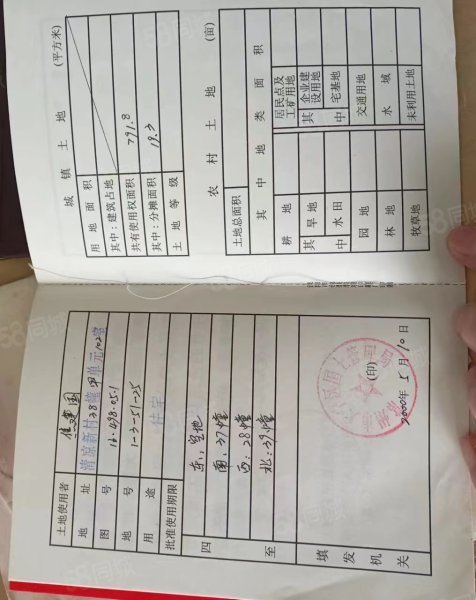 土地使用者 焦建国
地址 清凉新村38幢甲单元102室
图号 16-498-05-1
地号 1-3-51-25
用途 住宅
批准使用期限
四至
东:空地
南:37幢
西:28幢
北:39幢
填发机关
(印)
2000年5月10日
城镇土地 (平方米)
用地面积
其中:建筑占地
共有使用权面积 791.8
其中:分摊面积 19.3
土地等级
农村土地 (亩)
土地总面积
其中地类面积
耕地
其中 旱地
水田
园地
林地
牧草地
居民点及工矿用地
其中 企业建设用地
宅基地
交通用地
水域
未利用土地
58同城